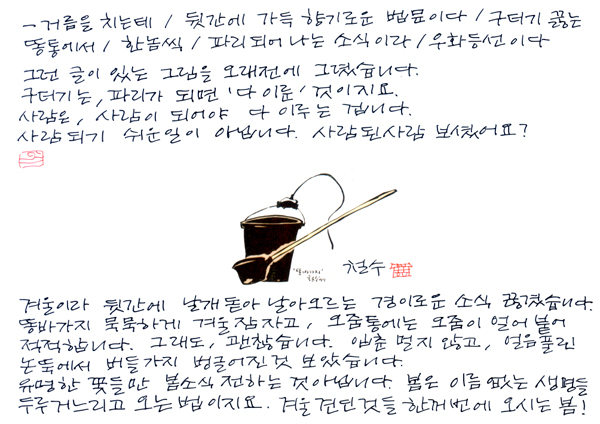 - 거름을 치는데 / 뒷간에 가득 향기로운 법문이다 / 구더기 끓는
똥통에서 / 한놈씩 / 파리되어 나는 소식이라 / 우화등선이다
그런 글이 있는 그림을 오래전에 그렸습니다.
구더기는, 파리가 되면 '다 이룬' 것이지요.
사람은, 사람이 되어야 다 이루는 겁니다.
사람되기 쉬운일이 아닙니다. 사람된사람 보셨어요?
철수
겨울이라 뒷간에 날개 돋아 날아오르는 경이로운 소식 끊겼습니다.
똥바가지 묵묵하게 겨울잠 자고, 오줌통에는 오줌이 얼어 붙어
적적합니다. 그래도, 괜찮습니다. 입춘 멀지 않고, 얼음풀린
논둑에서 버들가지 벙글어진것 보았습니다.
유명한 꽃들만 봄소식 전하는 것아닙니다. 봄은 이름 없는 생명들
두루거느리고 오는 법이지요. 겨울 견딘것들 한꺼번에 오시는 봄!